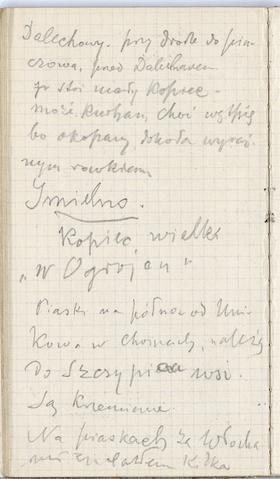 Dalechowy. przy drodze do Piń-
czowa, przed Dalechowem
stoi mały Kopiec -
może kurhan, choć wątpię
bo okopany dokoła wyraź-
nym rowkiem
Imielno.
Kopiec wielki
„w Ogrojcu"
Piaski na północ od Umi-
kowa w choinach, należą
Do Szczypi wsi.
Są krzemienie.
Na piaskach za Włocha-
mi znalazłem kilka